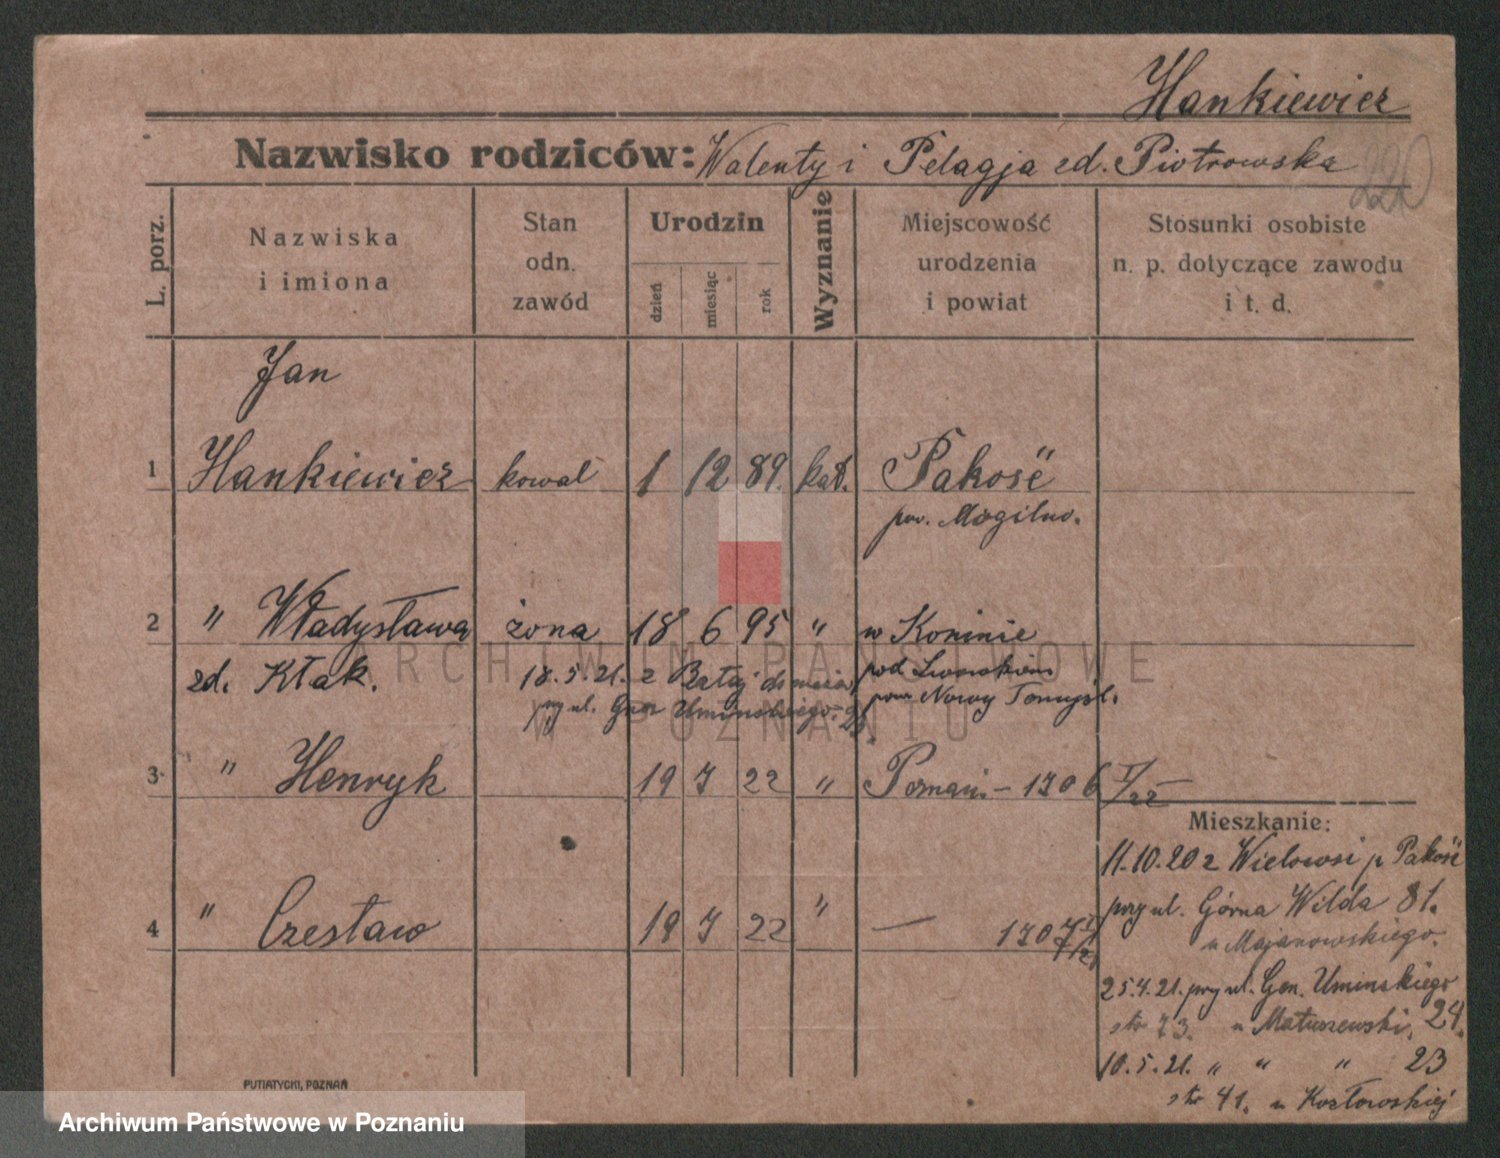 Hankiewicz
Nazwisko rodziców: Walenty i Pelagja zd. Piotrowska
220
L. porz.
Nazwiska
i imiona
Stan
odn.
zawód
Urodzin
dzień
miesiąc
rok
Wyznanie
Miejscowość
urodzenia
i powiat
Stosunki osobiste
n. p. dotyczące zawodu
i t. d.
Jan
1 Hankiewicz kowal 1 12 89. kat. Pakość
pow. Mogilno.
2 " Władysława żona 18 6 95 " w Koninie
zd. Kłak. 18.5.21. z
pod Lwówkiem
pow Nowy Tomyśl.
przy ul. Gen Umińskiego
3 " Henryk 19 7 22 " Poznań - 1706
4 " Czesław 19 7 22 " — 1707
Mieszkanie:
11.10.20 z Wielowsi p Pakość
przy ul. Górna Wilda 81.
u Majanowskiego.
25.4.21. przy ul. Gen. Umińskiego
str 73. u Matuszewski, 24.
10.5.21. " " " 23
str 41. u Kozłowskiej
PUTIATYCKI, POZNAŃ
ARCHIWUM PAŃSTWOWE
W POZNANIU
Archiwum Państwowe w Poznaniu